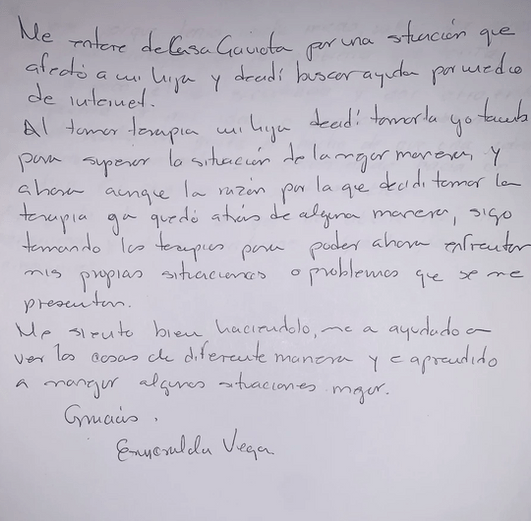 Me entere de Casa Gaviota por una situación que
afectó a mi hija y decidí buscar ayuda por medio
de internet.
Al tomar terapia mi hija decidí tomarla yo tamb
para superar la situación de la mejor manera, y
ahora aunque la razón por la que decidi tomar la
terapia ya quedó atrás de alguna manera, sigo
tomando las terapias para poder ahora enfrentar
mis propias situaciones o problemas que se me
presentan.
Me siento bien haciendolo, me a ayudado a
ver las cosas de diferente manera y e aprendido
a manejar algunas situaciones mejor.
Gracias.
Esmeralda Vega